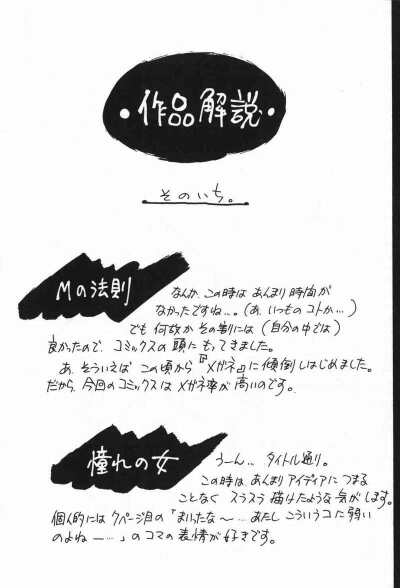 ・作品解説・
そのいち。
Mの法則
なんか、この時は あんまり 時間が
なかったですね…。(あ、いつものコトか…)
でも 何故か その割には (自分の中では)
良かったので、コミックスの頭に もってきました。
あ、そういえば この頃から『メガネ』に傾倒しはじめました。
だから、今回のコミックスは メガネ率が 高いのです。
憧れの女
うーん… タイトル通り。
この時は、あんまり アイディアに つまる
ことなく スラスラ 描けたような 気が します。
個人的には 7ページ目の「まいったな〜…あたし こういうコに 弱い
のよね―…」のコマの表情が 好きです。